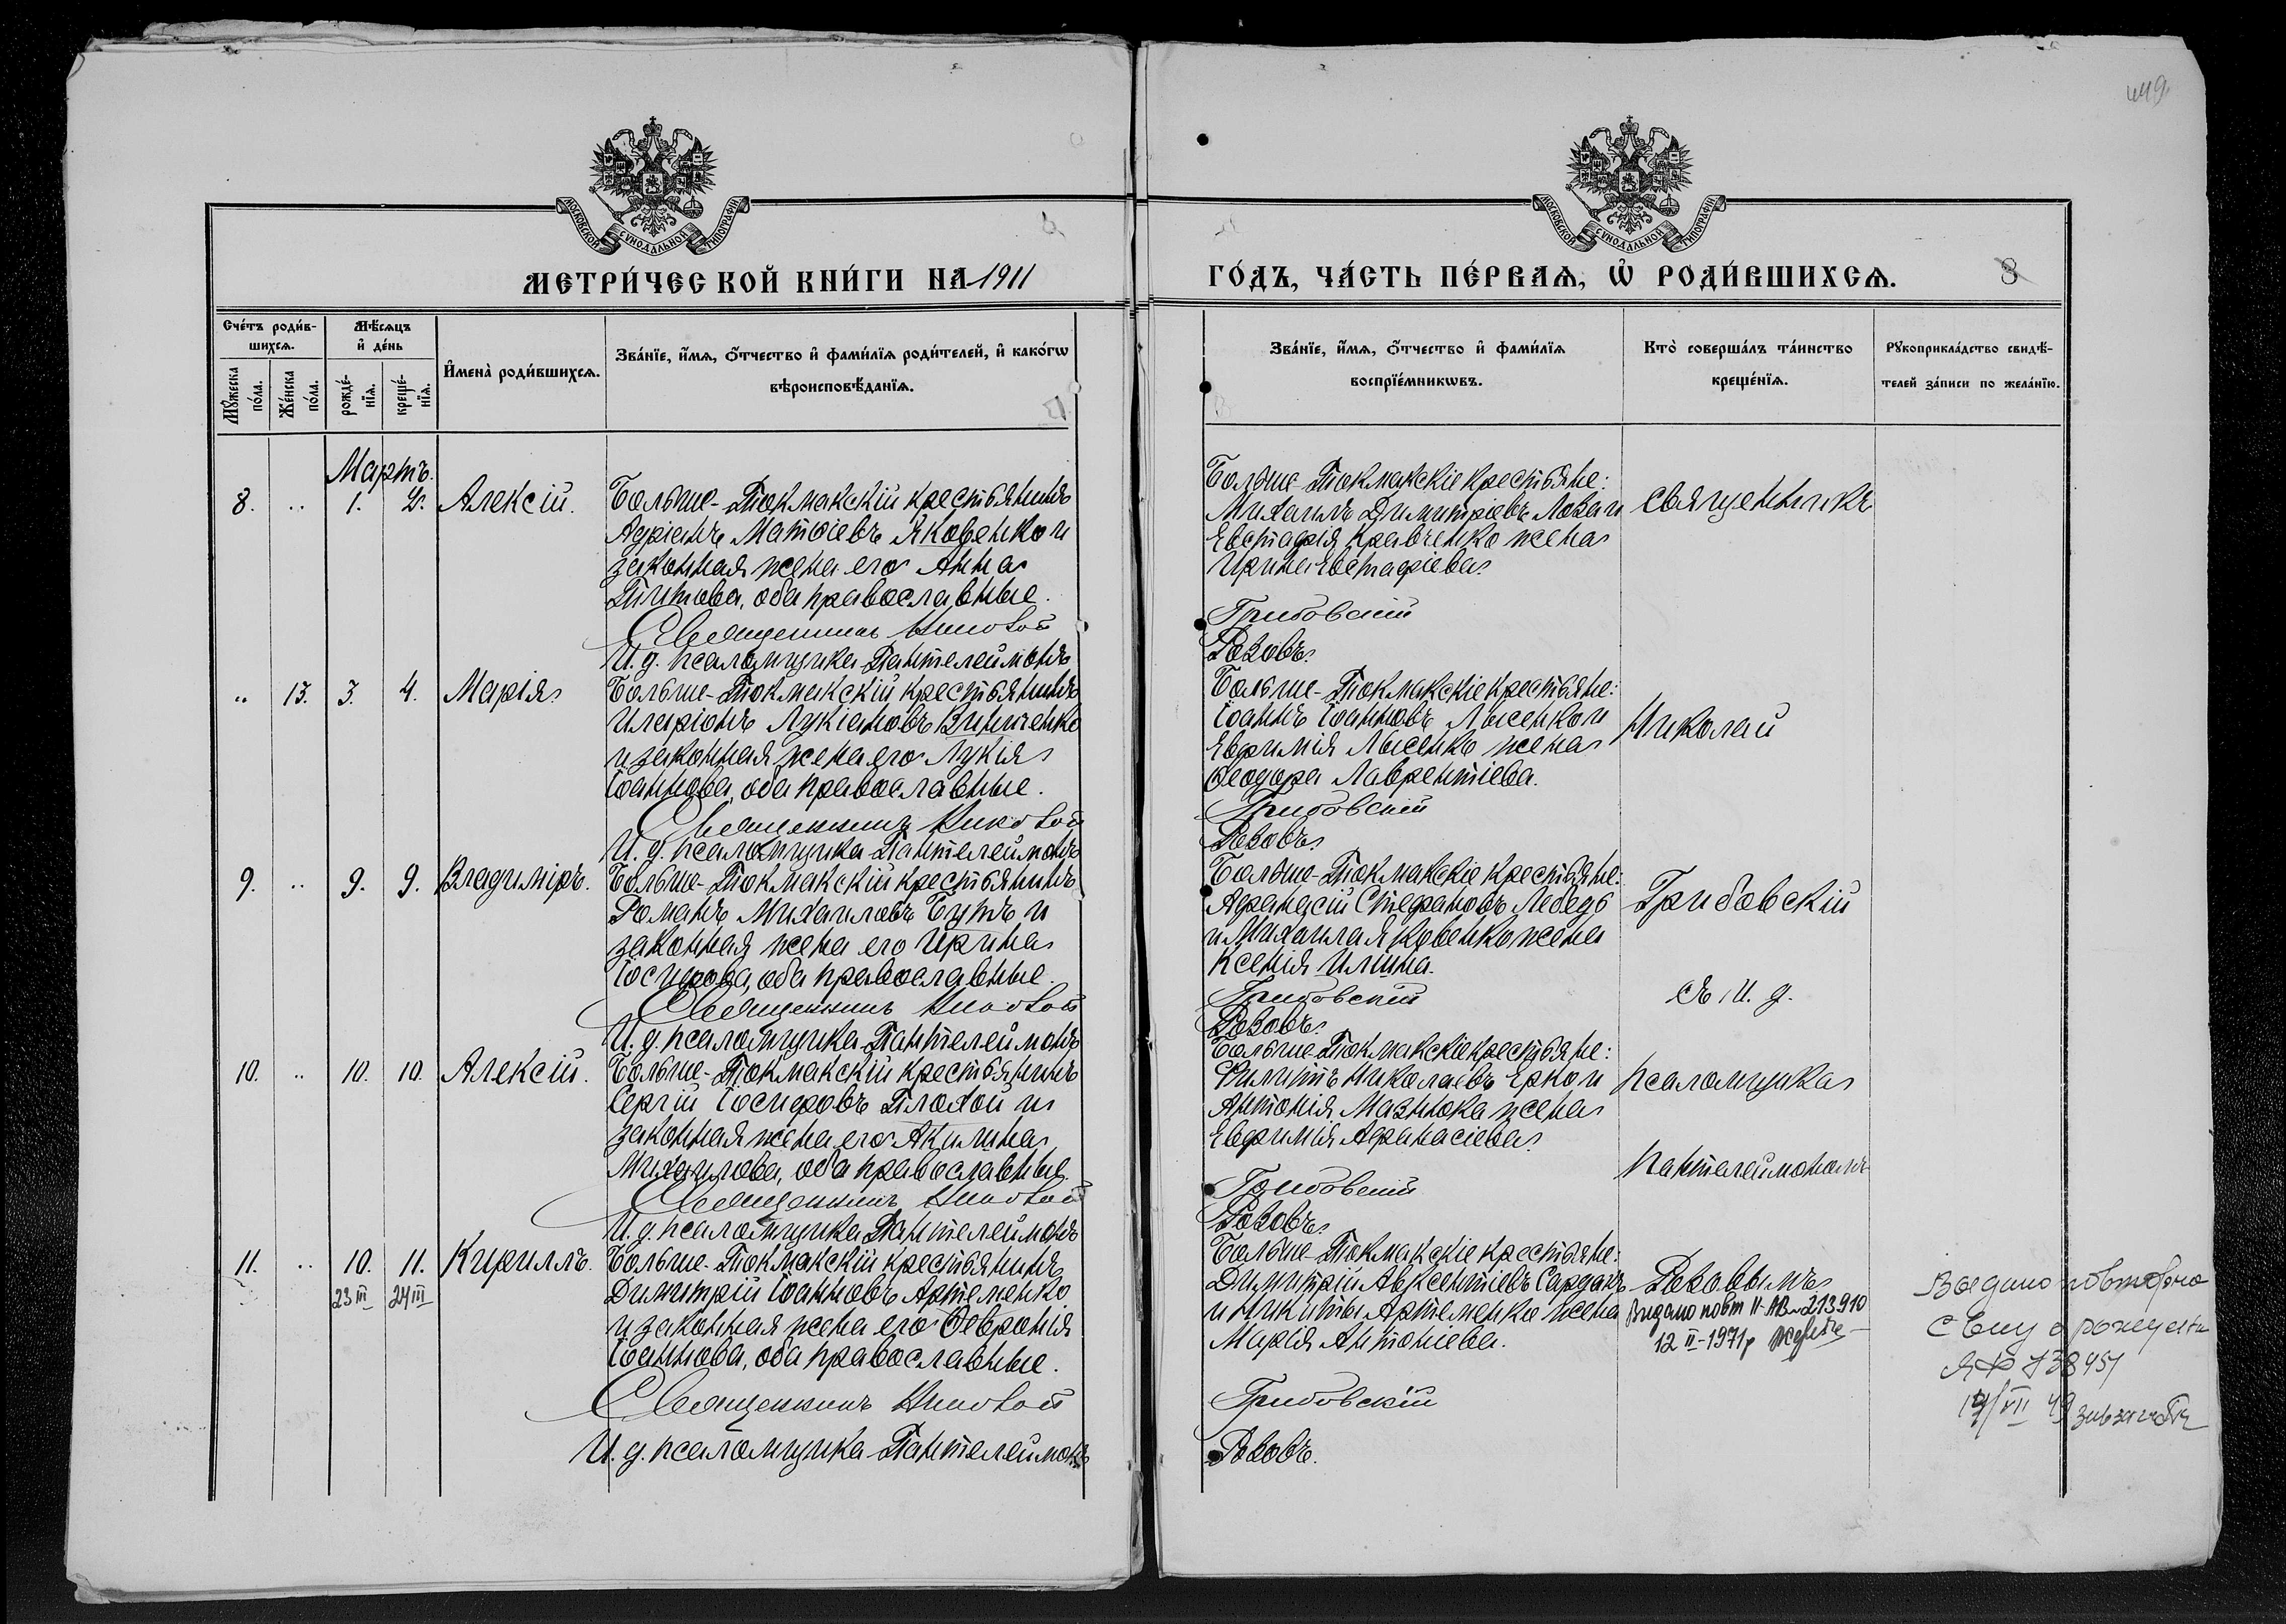 449
МОСКОВСКОЙ СѴНОДАЛЬНОЙ ТИПОГРАФІИ
МОСКОВСКОЙ СѴНОДАЛЬНОЙ ТИПОГРАФІИ
МЕТРИ́ЧЕСКОЙ КНИ́ГИ НА 1911
ГО́ДЪ, ЧА́СТЬ ПЕ́РВАѦ, Ѡ҆ РОДИ́ВШИХСѦ.
8
Сче́тъ роди́в-
шихсѧ.
Мꙋ́жеска по́ла.
Же́нска по́ла.
Мѣ́сѧцъ
и҆ де́нь
рожде́-нїѧ.
креще́-нїѧ.
И҆мена̀ роди́вшихсѧ.
Зва́нїе, и҆́мѧ, ѻ҆́тчество и҆ фами́лїѧ роди́телей, и҆ како́гѡ
вѣроисповѣ́данїѧ.
Зва́нїе, и҆́мѧ, ѻ҆́тчество и҆ фами́лїѧ
воспрїе́мникѡвъ.
Кто̀ соверша́лъ та́инство
креще́нїѧ.
Рꙋкоприкла́дство свидѣ́-
телей за́писи по жела́нїю.
Мартъ.
8. .. 1. 2. Алексій.
Больше-Токмакскій крестьянинъ
Адріанъ Матөіевъ Яковенко и
законная жена его Анна
Титова, оба православные.
Священникъ Николай
И. д. псаломщика Пантелеймонъ
Больше-Токмакскіе крестьяне:
Михаилъ Димитріевъ Лоза и
Евстафія Кравченко жена
Ирина Евстафіева.
Грибовскій
Розовъ.
.. 13. 3. 4. Марія.
Больше-Токмакскій крестьянинъ
Иларіонъ Лукіановъ Винниченко
и законная жена его Лукія
Іоаннова, оба православные.
Священникъ Николай
И. д. псаломщика Пантелеймонъ
Больше-Токмакскіе крестьяне:
Іоаннъ Іоанновъ Лысенко и
Евфимія Лысенко жена
Өеодора Лаврентіева.
Грибовскій
Розовъ.
9. .. 9. 9. Владиміръ.
Больше-Токмакскій крестьянинъ
Романъ Михаиловъ Бутъ и
законная жена его Ирина
Іосифова, оба православные.
Священникъ Николай
И. д. псаломщика Пантелеймонъ
Больше-Токмакскіе крестьяне:
Афанасій Стефановъ Лебедь
и Михаила Яковенко жена
Ксенія Иліина.
Грибовскій
Розовъ.
10. .. 10. 10. Алексій.
Больше-Токмакскій крестьянинъ
Сергій Іосифовъ Плохой и
законная жена его Акилина
Михаилова, оба православные.
Священникъ Николай
И. д. псаломщика Пантелеймонъ
Больше-Токмакскіе крестьяне:
Филиппъ Николаевъ Ерко и
Антонія Мазнюка жена
Евфимія Афанасіева.
Грибовскій
Розовъ.
11. .. 10. 11. Кириллъ.
23 III 24 III
Больше-Токмакскій крестьянинъ
Димитрій Іоанновъ Артеменко
и законная жена его Февронія
Іоаннова, оба православные.
Священникъ Николай
И. д. псаломщика Пантелеймонъ
Больше-Токмакскіе крестьяне:
Димитрій Авксентіевъ Сардакъ
и Никиты Артеменко жена
Марія Антоніева.
Грибовскій
Розовъ.
Священникъ
Николай
Грибовскій
съ И. д.
псаломщика
Пантелеймономъ
Розовымъ
Видано повт II-АВ № 213910
12 II-1971р
Видано повторно
с-ву о рожден
ЯФ 738451